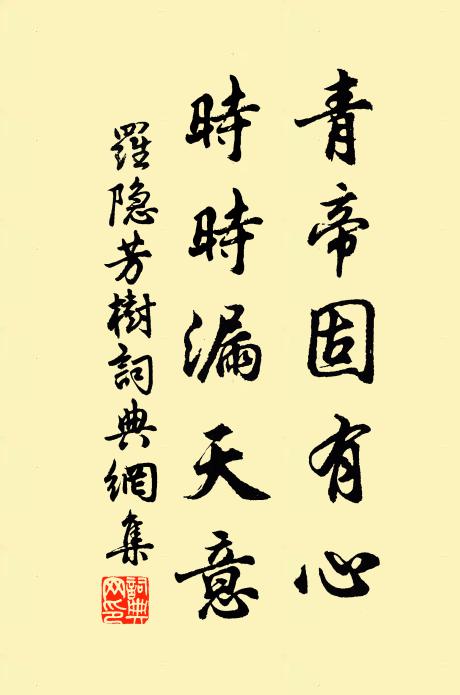 青帝固有心
時時漏天意
羅隐芳樹詞典網集
詞典網印